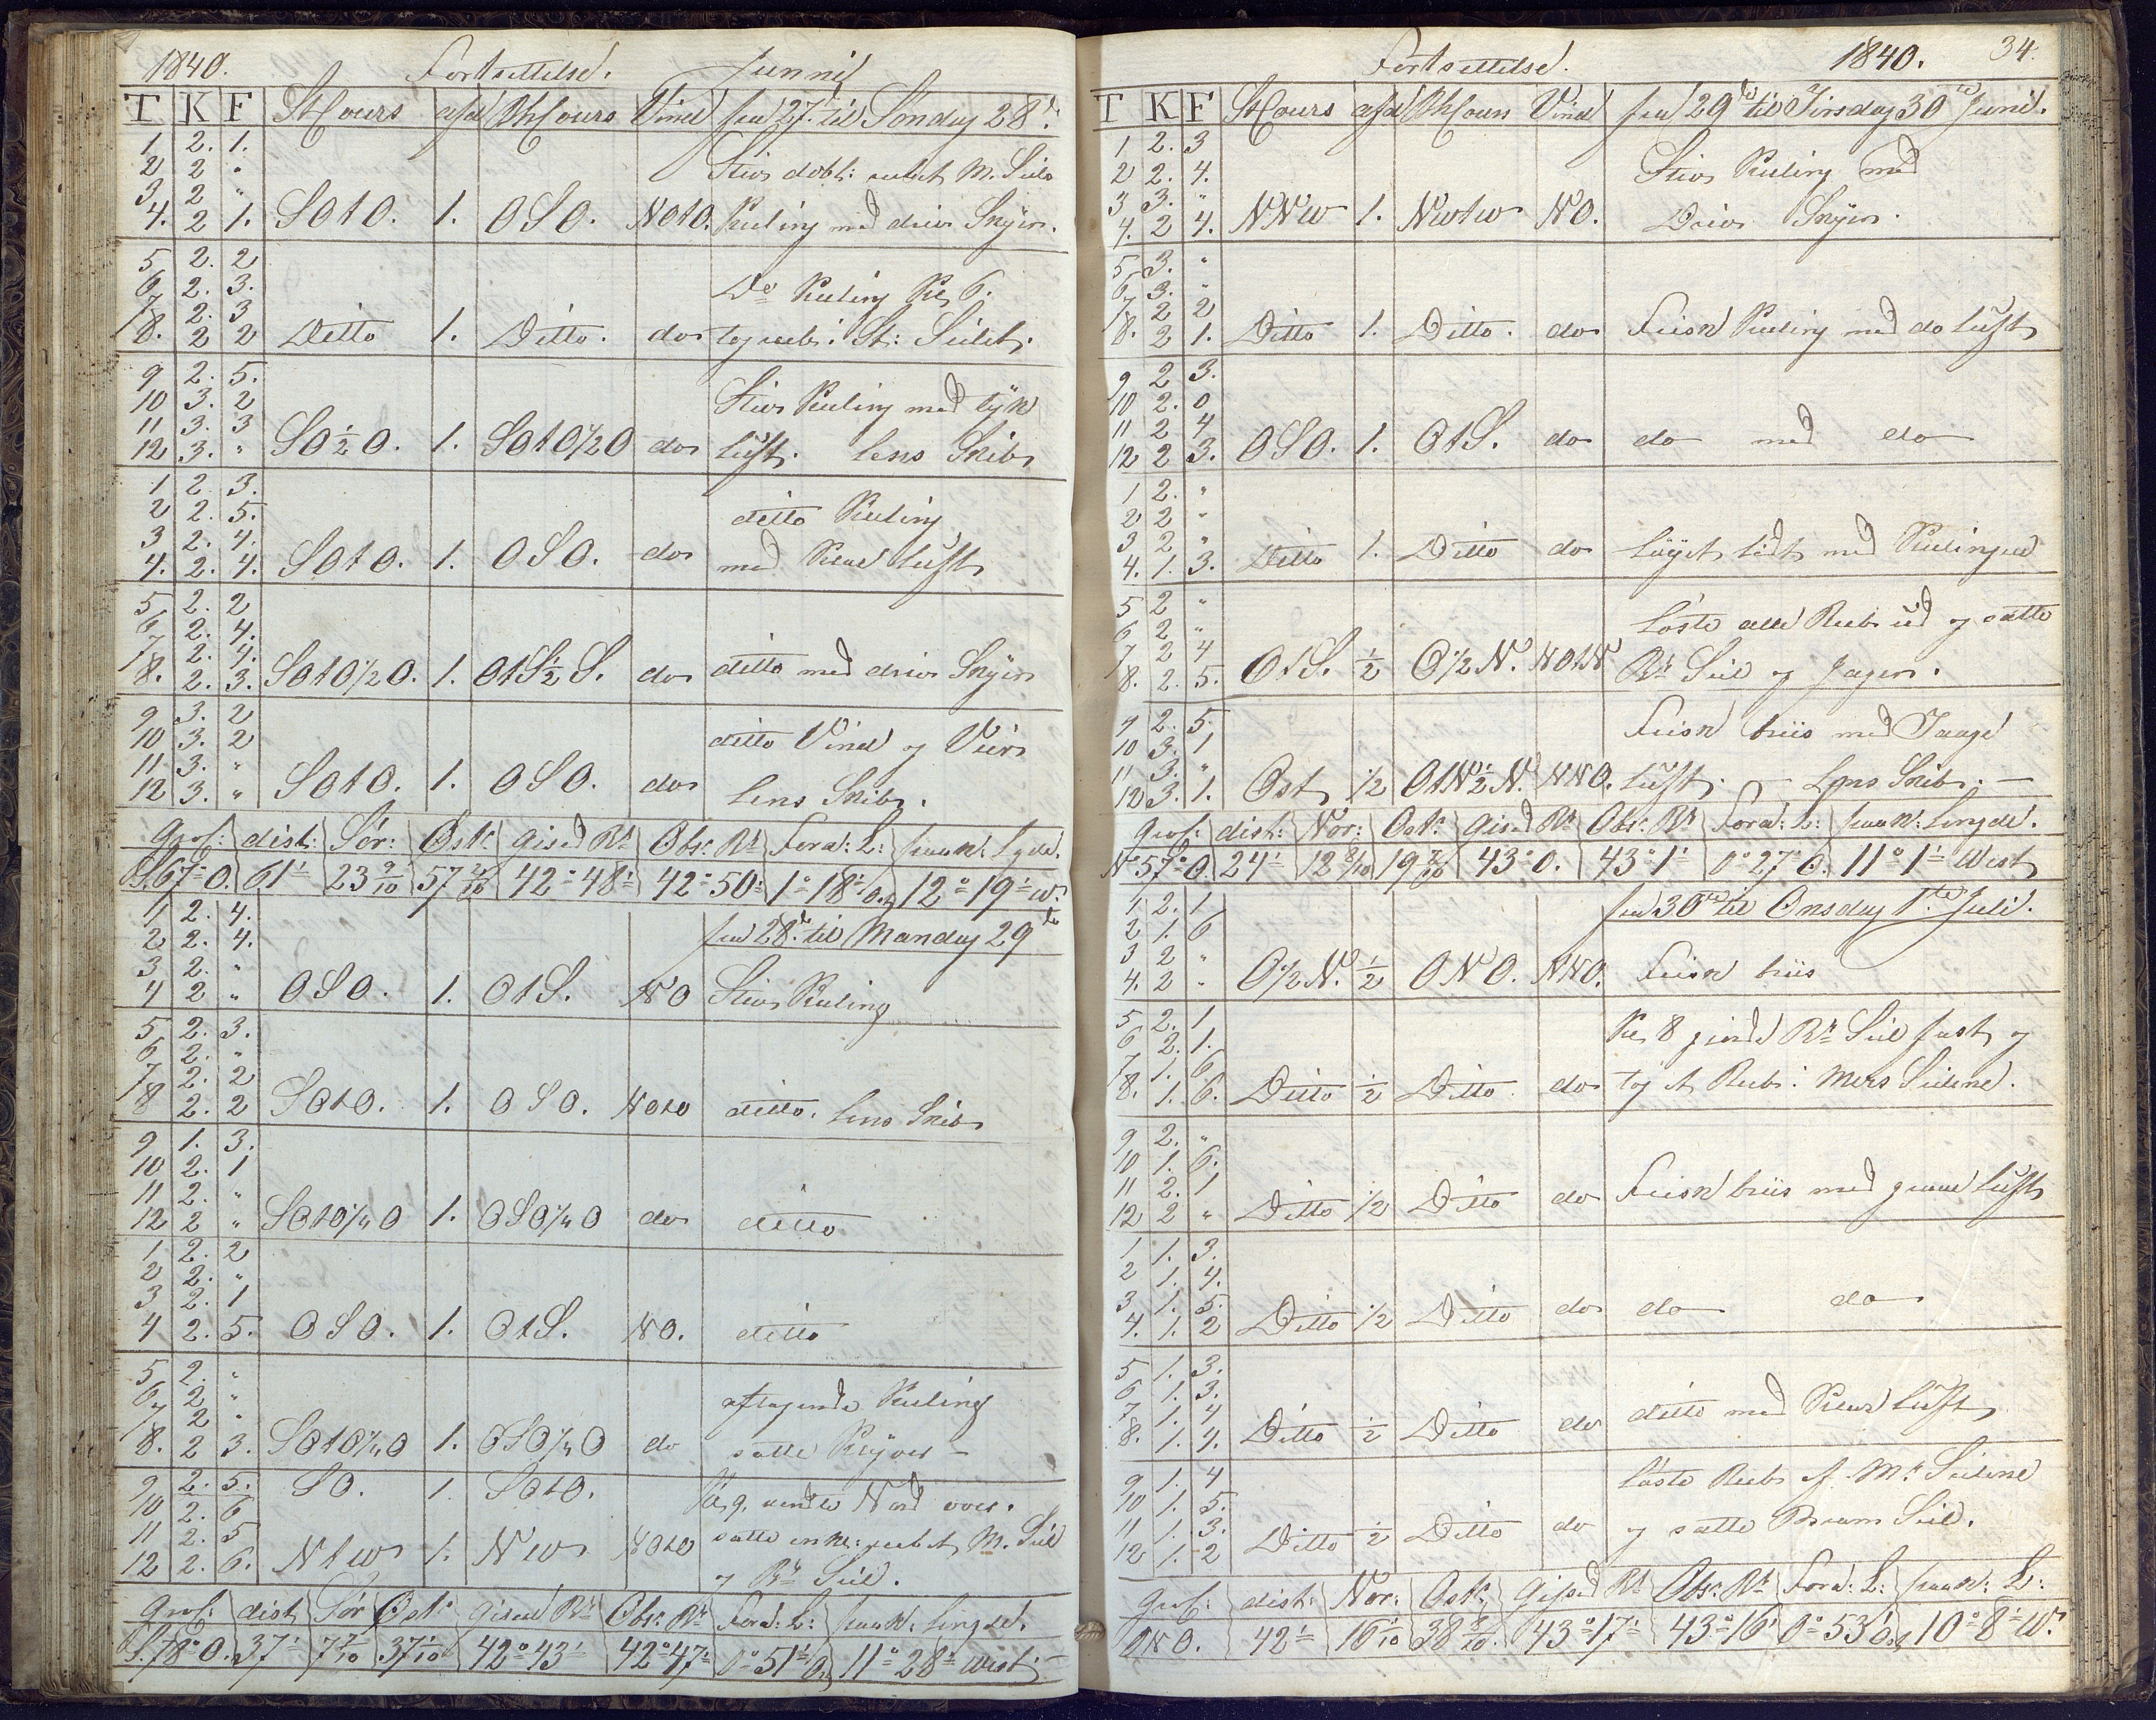 1840. Fortsettelse. Junnij
T K F St Cours afd Bh Cours Vind fra 27. til Søndag 28de
1 2. 1. Stiv dobt: rebet M. Seils
2 2 "
3 2 "
4. 2 1. SOtO. 1. OSO. NOtO. Kuling med driv Skyer.
5 2. 2
6 2. 3. Do Kuling Kl 6.
7 2. 3
8. 2 2 Ditto 1. Ditto. do tog reb i St: Seilet.
9 2. 5. Stiv Kuling med tyk
10 3. 2
11 3. 3
12 3. " SO½O. 1. SOtO½O do luft. Lens Skib
1 2 3.
2 2. 5. ditto Kuling
3 2. 4.
4. 2. 4. SOtO. 1. OSO. do med Klar Luft
5 2. 2
6 2. 4.
7 2. 4.
8. 2. 3. SOtO½O. 1. OtS½S. do ditto med driv Skyer
9 3. 2
10 3. 2 ditto Vind og Veir
11 3. "
12 3. " SOtO. 1. OSO. do Lens Skib.
Gros: dist: Sör: Ost: gised Bt Obs: Bt Ford: L: paak: Lgde.
S.67°O. 61' 23 9/10 57 2/10 42°48' 42°50' 1°18'O. 12°19'W.
1 2. 4. fra 28de til Mandag 29de
2 2. 4.
3 2. "
4 2 " OSO. 1. OtS. NO Stiv Kuling
5 2. 3.
6 2. "
7 2. 2
8 2. 2 SOtO. 1. OSO. NOtO ditto. Lens Skib
9 1. 3.
10 2. 1
11 2. "
12 2 " SOtO¼O 1. OSO¼O do ditto
1 2. 2
2 2. "
3 2. 1
4 2. 5. OSO. 1. OtS. NO. ditto
5 2. "
6 2 " aftagende Kuling
7 2 "
8. 2 3. SOtO¼O 1. OSO¼O do satte Klyver –
9 2. 5. SO. 1. SOtO. Kl 9. vendte Nord over.
10 2. 6
11 2. 5 satte enk: rebet M. Seil
12 2. 6. NtW 1. NW NOtO og Bk Seil.
Gros: dist Sör Ost: gised Bt Obs: Bt Ford: L: paak: Lengde.
S.78°O. 37' 7 7/10 37 1/10 42°43' 42°47' 0°51'O. 11°28' West. –
Fortsettelse. 1840. 34.
T K F St Cours afd Bh Cours Vind fra 29de til Tirsdag 30te Junii.
1 2. 3 Stiv Kuling med
2 2. 4.
3 3. "
4. 2 4. NNW 1. NWtW NO. Driv Skyer.
5 3. "
6 3. "
7 2 2
8. 2 1. Ditto 1. Ditto. do Frisk Kuling med do Luft
9 2 3.
10 2. 0
11 2 4
12 2 3. OSO. 1. OtS. do do med do
1 2. "
2 2 "
3 2 "
4. 1. 3. Ditto 1. Ditto do Löyet lidt med Kulingen
5 2 " Löste alle Reb ud og satte
6 2 "
7 2 4
8. 2. 5. OtS. ½ O½N. NOtN Bk Seil og Jager.
9 2. 5. Frisk briis med Taage
10 3. 1
11 3. "
12 3. 1. Ost ½ OtN½N. NNO. Luft. – Lens Skib. –
Gros: dist: Nor: Ost: gised Bt Obs: Bt Ford: L: paak: Lengde.
N.57°O. 24' 12 8/10 19 7/10 43°0. 43°1' 0°27'O. 11°1' West
1 2. 1 fra 30te til Onsdag 1ste Juli.
2 1. 6
3 2 "
4. 2 " O½N. ½ ONO. NNO. Frisk briis
5 2. 1 Kl 8 giorde Bk Seil fast og
6 2. 1.
7 1. 6
8. 1. 6. Ditto ½ Ditto do tog et Reb i Mers Seilene.
9 2. "
10 1. 6.
11 2. 1
12 2 " Ditto ½ Ditto do Frisk briis med graae Luft
1 1. 3.
2 1. 4.
3 1. 5.
4. 1. 2 Ditto ½ Ditto do do do
5 1. 3.
6 1. 3.
7 1. 4
8. 1. 4. Ditto ½ Ditto do ditto med Klar Luft
9 1. 4 Löste Reb af Ms Seilene
10 1. 5.
11 1. 3.
12 1. 2 Ditto ½ Ditto do og satte Bram Seil.
Gros: dist: Nor: Ost: Gised Bt Obs: Bt Ford: L: paak: L:
ONO. 42' 16 1/10 38 8/10. 43°17' 43°16' 0°53'O. 10°8'W.